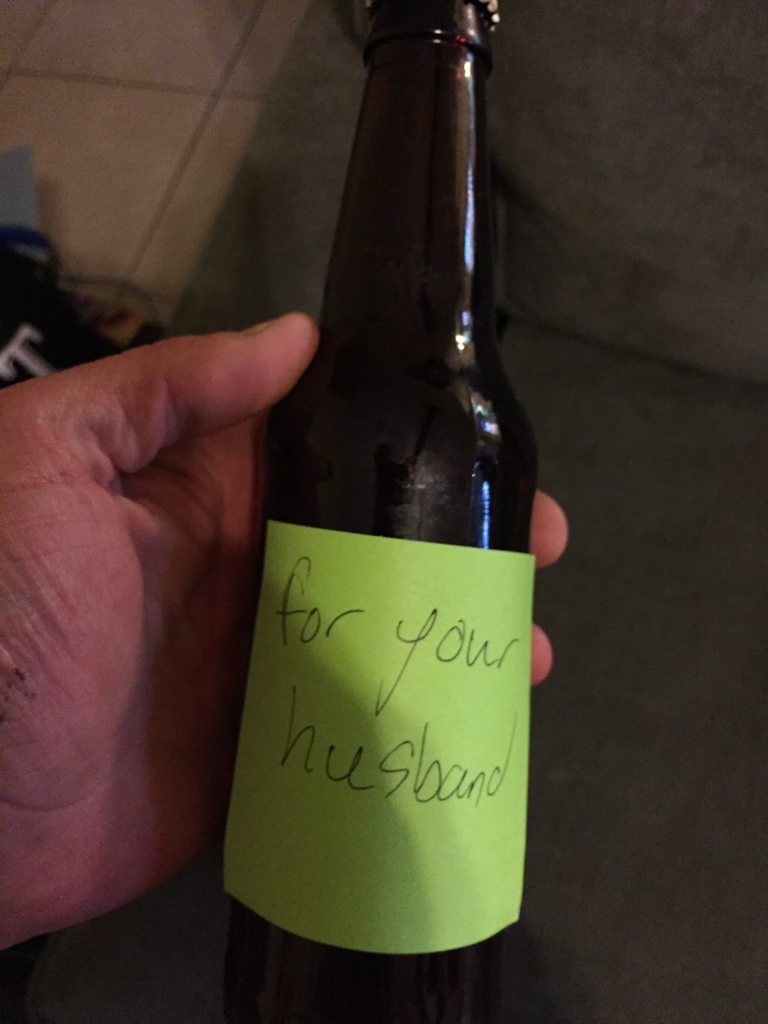 for your
husband
T